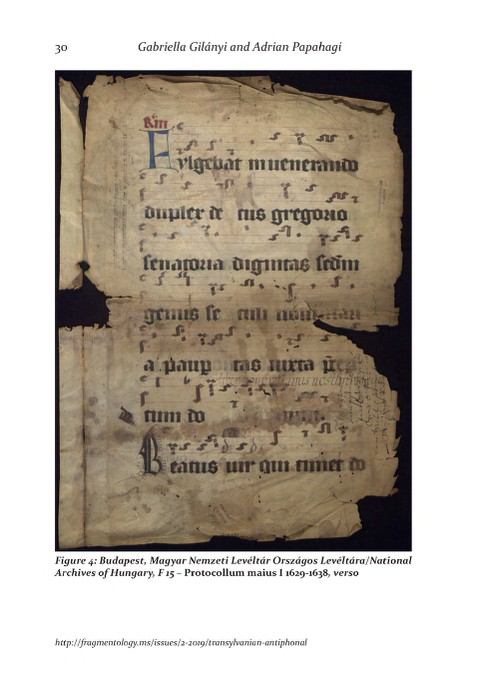 30
Gabriella Gilányi and Adrian Papahagi
Rm
Fylgebat in uenerando
duplex de cus gregorio
senatoria dignitas scdm
genus se culi
a paup tas iuxta
tum do
Beatus uir qui timet do
Figure 4: Budapest, Magyar Nemzeti Levéltár Országos Levéltára/National
Archives of Hungary, F 15 – Protocollum maius I 1629-1638, verso
http://fragmentology.ms/issues/2-2019/transylvanian-antiphonal